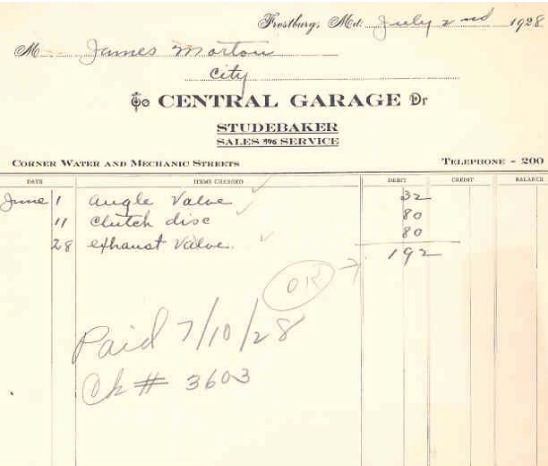 Frostburg, Md. July 2nd 1928
M James Morton
City
To CENTRAL GARAGE Dr
STUDEBAKER
SALES AND SERVICE
CORNER WATER AND MECHANIC STREETS TELEPHONE - 200
DATE ITEMS CHARGED DEBIT CREDIT BALANCE
June 1 Angle Valve 32
11 Clutch disc 80
28 exhaust Valve 80
192
OK
Paid 7/10/28
Ck # 3603